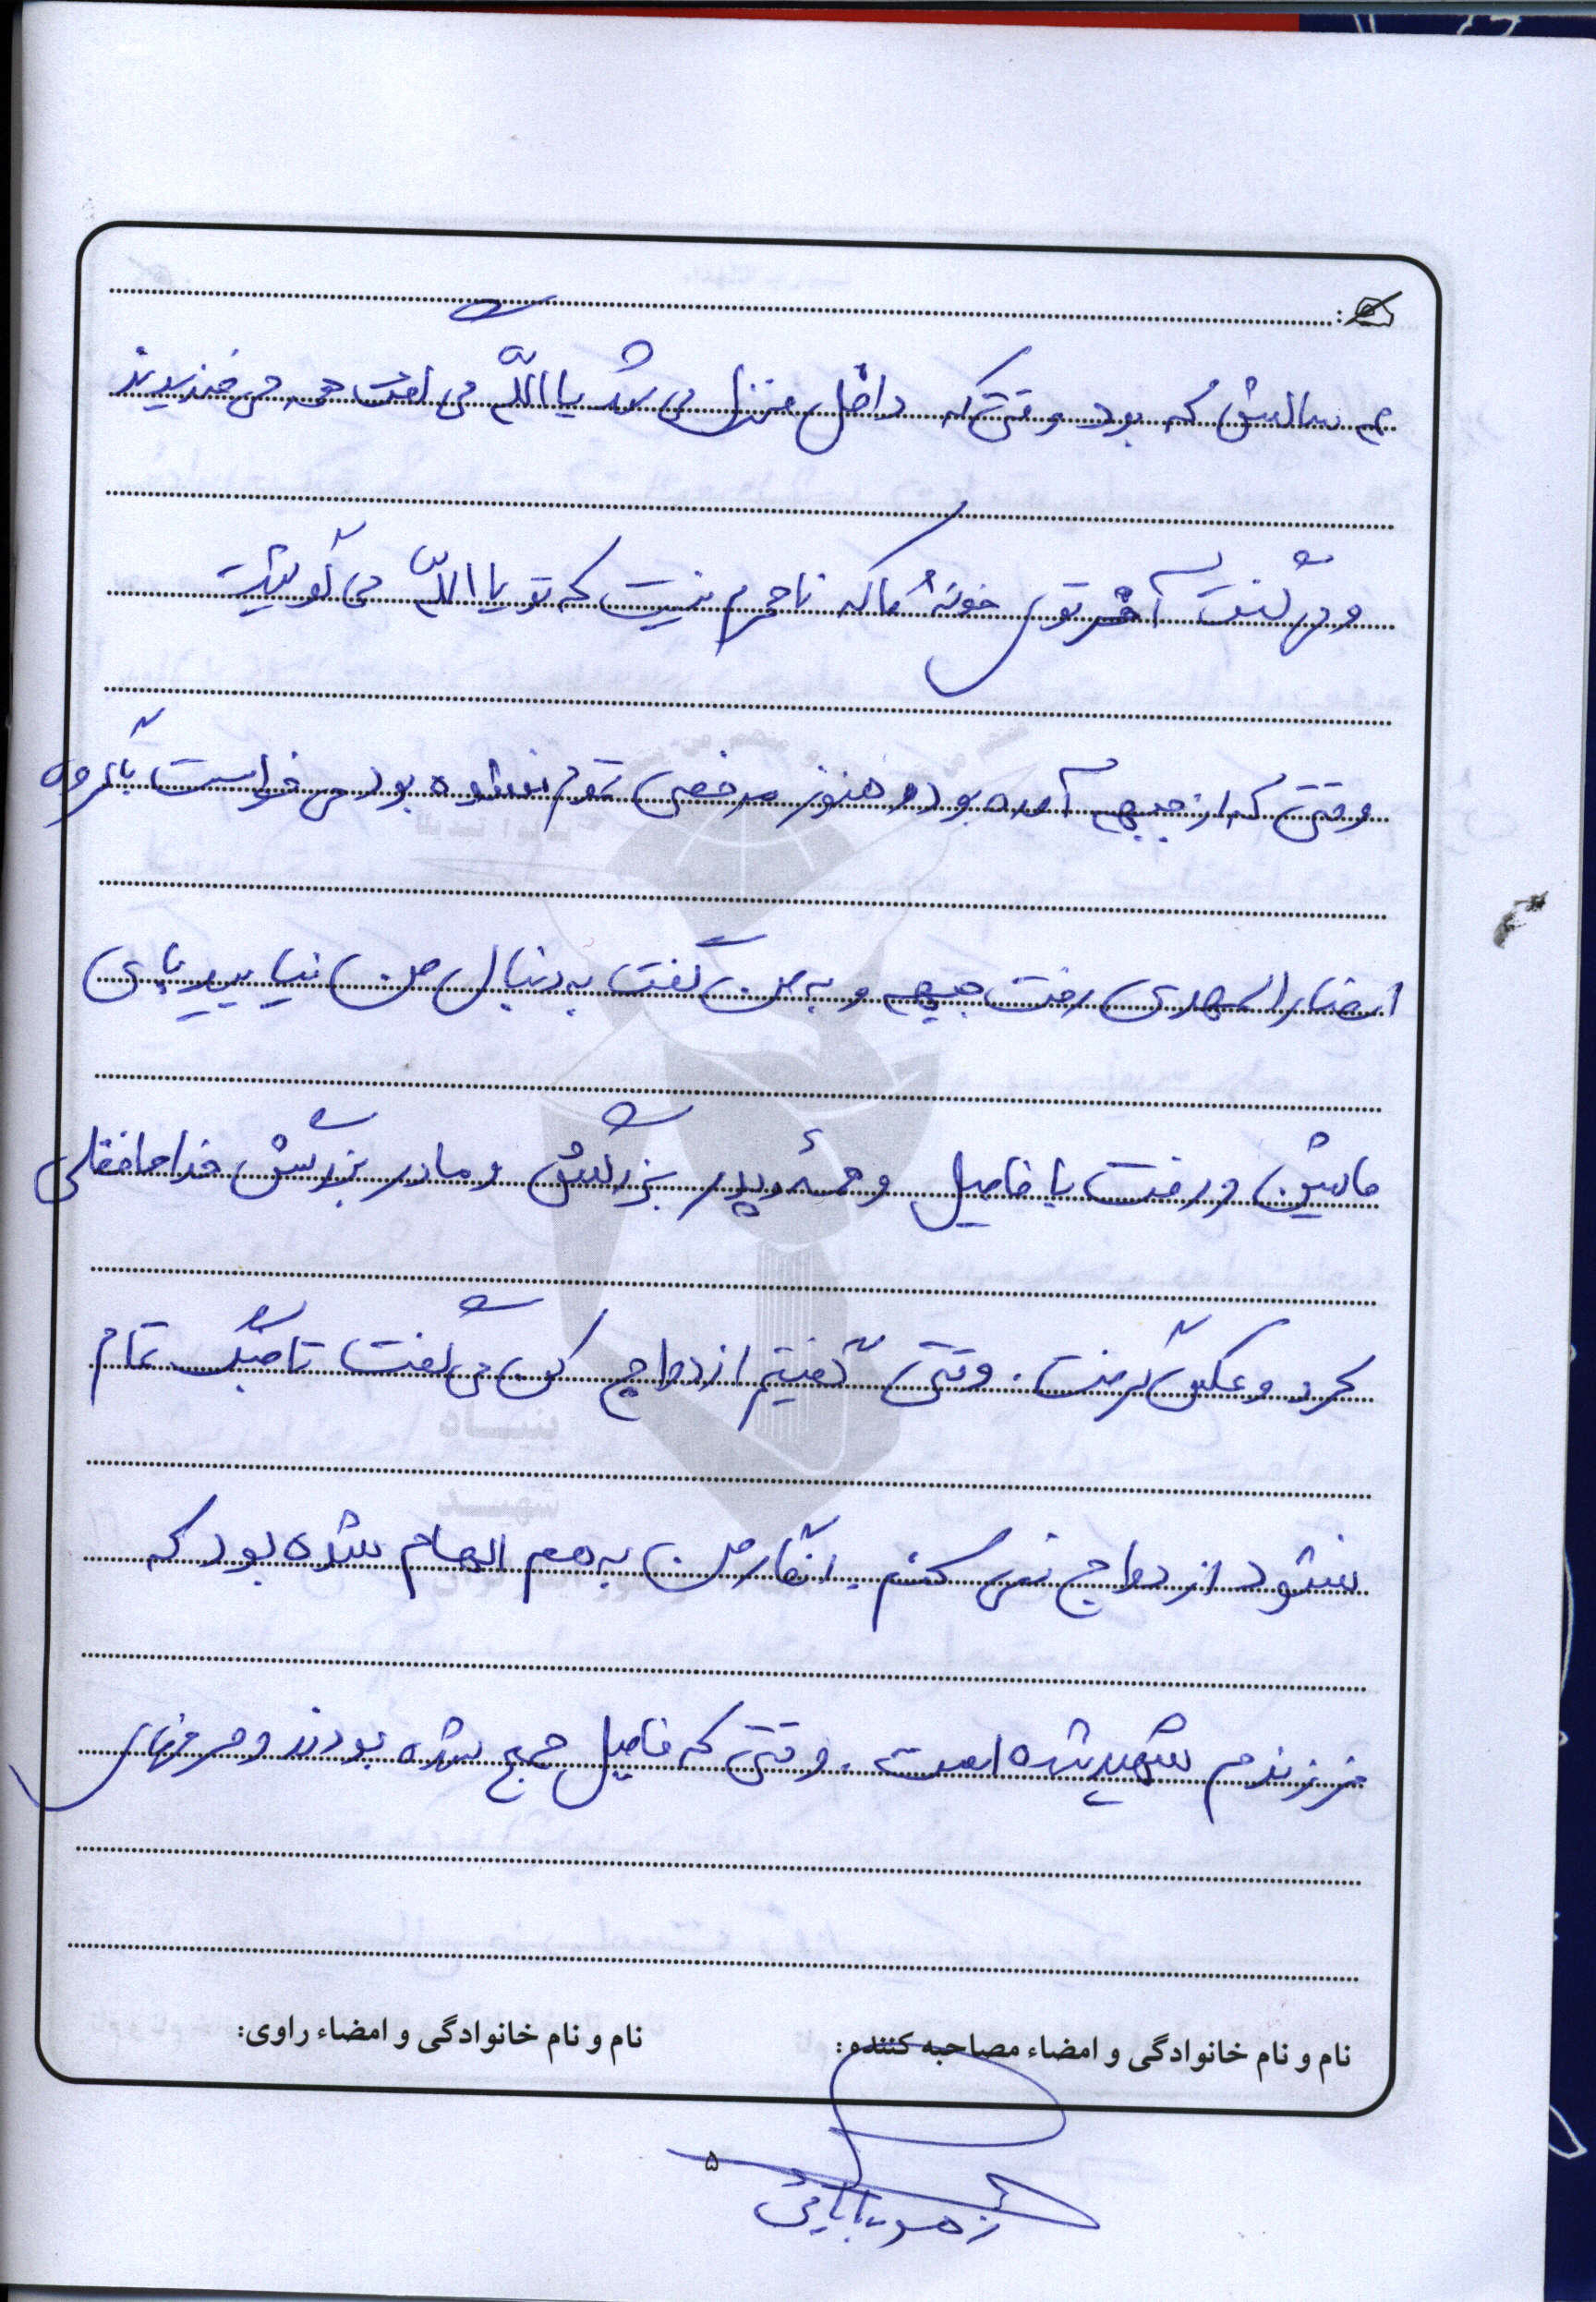 ۳ سالش که بود وقتی که داخل منزل می شد یا اللّه می گفت همه می خندیدند
و می گفت آخر توی خونۀ ما که نامحرم نیست که تو یا اللّه می گویی
وقتی که از جبهه آمده بود و هنوز مرخصی تموم نشده بود می خواست با گروه
انصار المهدی رفت جبهه و به من گفت به دنبال من نیایید پای
ماشین و رفت با فامیل و همۀ پدر بزرگش و مادر بزرگش خداحافظی
کرد و عکس گرفت. وقتی گفتیم ازدواج کن می گفت تا جنگ تمام
نشود ازدواج نمی کنم. انگار من به هم الهام شده بود که
فرزندم شهید شده است. وقتی که فامیل جمع شده بودند و حرفهای
نام و نام خانوادگی و امضاء مصاحبه کننده:
نام و نام خانوادگی و امضاء راوی:
۵
بابایی